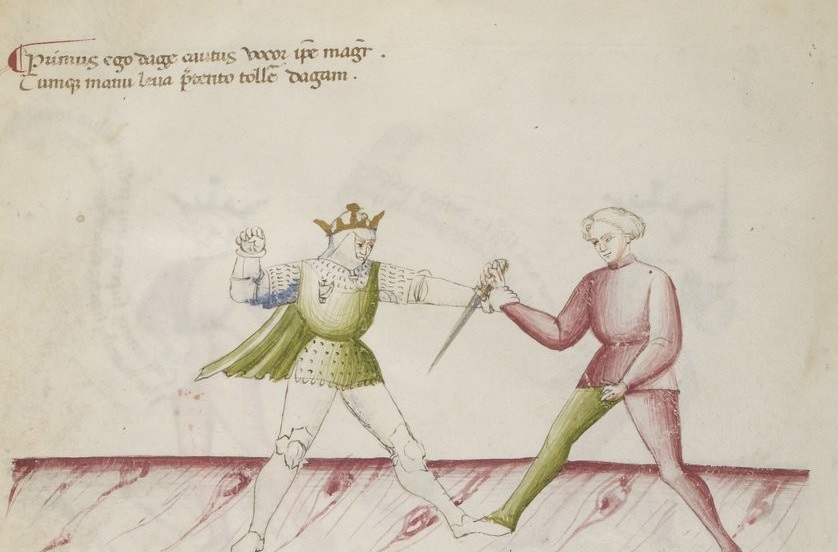 Primus ego dage cautus vocor ip̄e magr̄ .
Cumqȝ manu leua p̄tento tollē dagam .